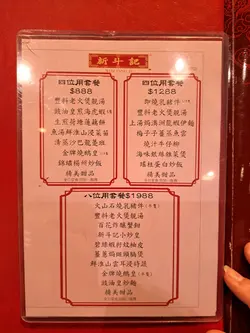 新斗記
四位用套餐
$888
豐料老火煲靚湯
豉油皇煎海虎蝦
生煎荷塘蓮藕餅
魚湯鮮淮山浸菜苗
清蒸沙巴龍躉班
金牌燒鵝皇
錦繡楊州炒飯
精美甜品
四位用套餐
$1288
即燒乳豬件
豐料老火煲靚湯
上湯焗澳洲龍蝦伊麵
梅子子薑蒸魚雲
燒汁牛仔柳
海味雜絲雜菜煲
瑤柱蛋白炒飯
精美甜品
八位用套餐$1988
大山石燒乳豬件
豐料老火煲靚湯
百花炸釀蟹鉗
新斗記小炒皇
碧綠蝦籽炆柚皮
薑蔥焗斷頭腸煲
鮮淮山雲耳浸時蔬
金牌燒鵝皇
豉油皇炒麵
精美甜品